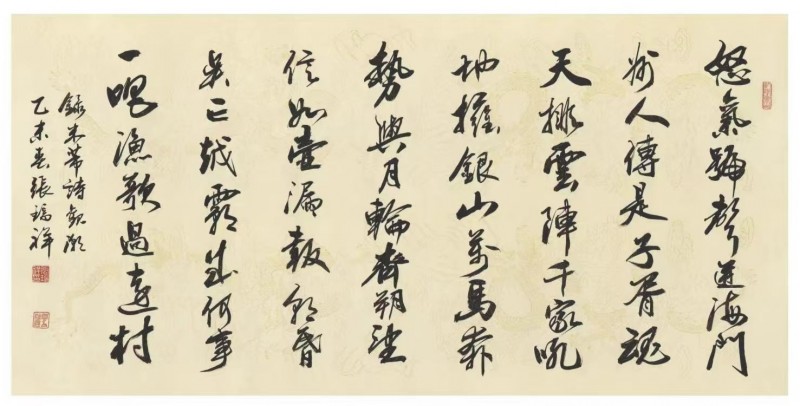 怒氣號聲迸海門
州人傳是子胥魂
天排雲陣千家吼
地擁銀山萬馬奔
勢與月輪齊朔望
信如壺漏報昏
吳亡越霸成何事
一唱漁歌過遠村
錄米芾詩觀潮
乙未春張福祥